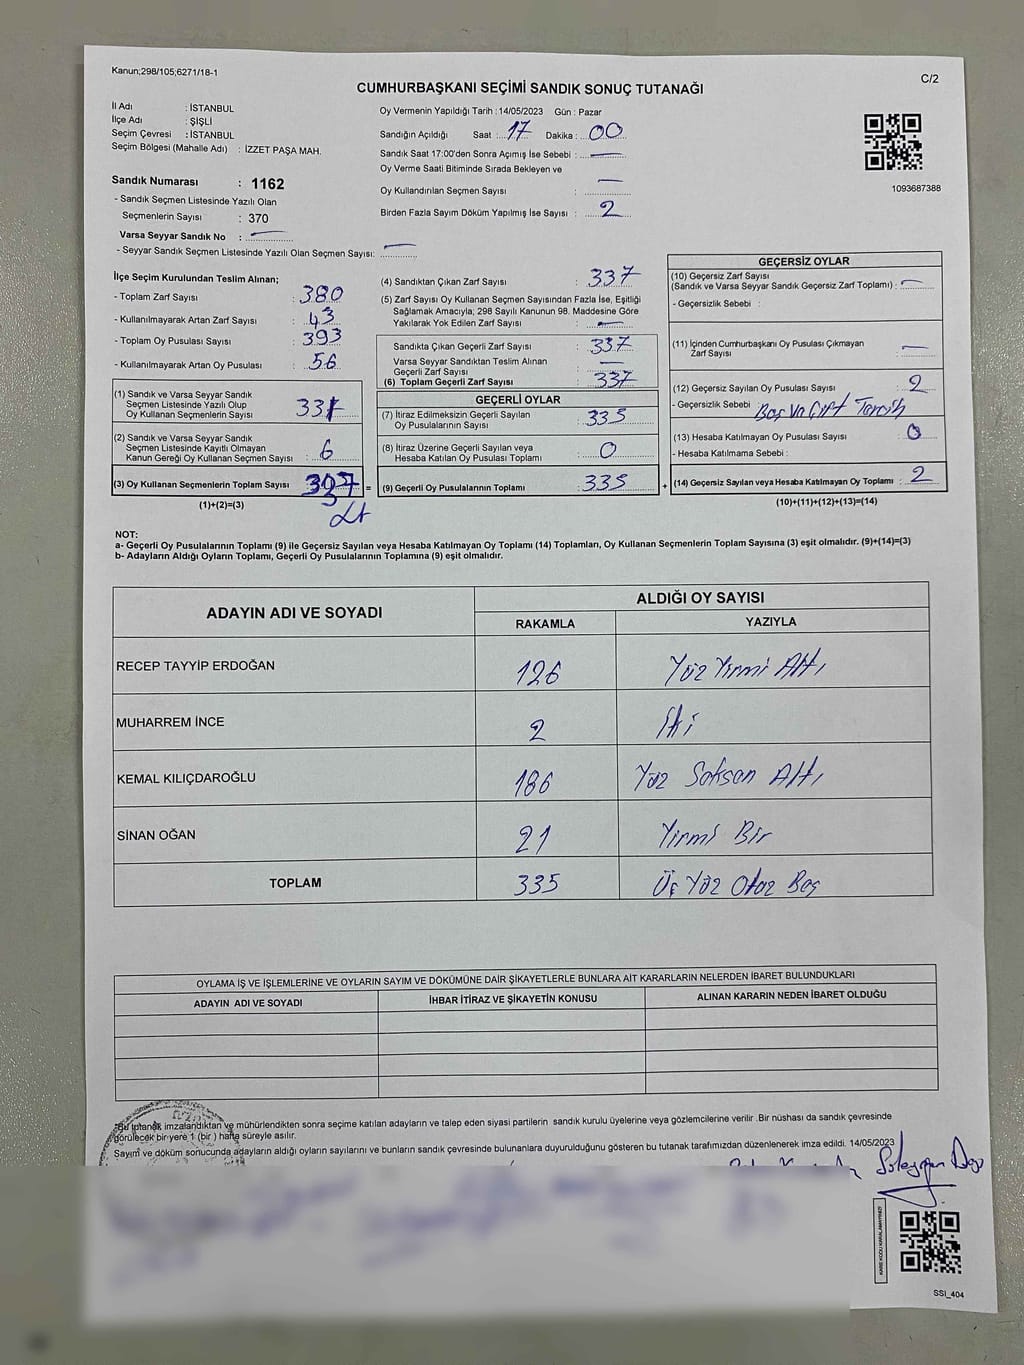 Kanun;298/105;6271/18-1
C/2
CUMHURBAŞKANI SEÇİMİ SANDIK SONUÇ TUTANAĞI
İl Adı : İSTANBUL
İlçe Adı : ŞİŞLİ
Seçim Çevresi : İSTANBUL
Seçim Bölgesi (Mahalle Adı) : İZZET PAŞA MAH.
Sandık Numarası : 1162
- Sandık Seçmen Listesinde Yazılı Olan
Seçmenlerin Sayısı : 370
Varsa Seyyar Sandık No : —
- Seyyar Sandık Seçmen Listesinde Yazılı Olan Seçmen Sayısı: —
Oy Vermenin Yapıldığı Tarih : 14/05/2023 Gün : Pazar
Sandığın Açıldığı Saat : 17 Dakika : 00
Sandık Saat 17:00'den Sonra Açımış İse Sebebi : —
Oy Verme Saati Bitiminde Sırada Bekleyen ve
Oy Kullandırılan Seçmen Sayısı : —
Birden Fazla Sayım Döküm Yapılmış İse Sayısı : 2
1093687388
İlçe Seçim Kurulundan Teslim Alınan;
- Toplam Zarf Sayısı : 380
- Kullanılmayarak Artan Zarf Sayısı : 43
- Toplam Oy Pusulası Sayısı : 393
- Kullanılmayarak Artan Oy Pusulası : 56
(1) Sandık ve Varsa Seyyar Sandık
Seçmen Listesinde Yazılı Olup
Oy Kullanan Seçmenlerin Sayısı 331
(2) Sandık ve Varsa Seyyar Sandık
Seçmen Listesinde Kayıtlı Olmayan
Kanun Gereği Oy Kullanan Seçmen Sayısı : 6
(3) Oy Kullanan Seçmenlerin Toplam Sayısı :
(1)+(2)=(3)
(4) Sandıktan Çıkan Zarf Sayısı : 337
(5) Zarf Sayısı Oy Kullanan Seçmen Sayısından Fazla İse, Eşitliği
Sağlamak Amacıyla; 298 Sayılı Kanunun 98. Maddesine Göre
Yakılarak Yok Edilen Zarf Sayısı : —
Sandıkta Çıkan Geçerli Zarf Sayısı : 337
Varsa Seyyar Sandıktan Teslim Alınan
Geçerli Zarf Sayısı : —
(6) Toplam Geçerli Zarf Sayısı : 337
GEÇERLİ OYLAR
(7) İtiraz Edilmeksizin Geçerli Sayılan
Oy Pusulalarının Sayısı : 335
(8) İtiraz Üzerine Geçerli Sayılan veya
Hesaba Katılan Oy Pusulası Toplamı : 0
= (9) Geçerli Oy Pusulalarının Toplamı : 335
GEÇERSİZ OYLAR
(10) Geçersiz Zarf Sayısı
(Sandık ve Varsa Seyyar Sandık Geçersiz Zarf Toplamı) : —
- Geçersizlik Sebebi :
(11) İçinden Cumhurbaşkanı Oy Pusulası Çıkmayan
Zarf Sayısı : —
(12) Geçersiz Sayılan Oy Pusulası Sayısı : 2
- Geçersizlik Sebebi : Boş Ve Çift Tercih
(13) Hesaba Katılmayan Oy Pusulası Sayısı : 0
- Hesaba Katılmama Sebebi :
+ (14) Geçersiz Sayılan veya Hesaba Katılmayan Oy Toplamı : 2
(10)+(11)+(12)+(13)=(14)
NOT:
a- Geçerli Oy Pusulalarının Toplamı (9) ile Geçersiz Sayılan veya Hesaba Katılmayan Oy Toplamı (14) Toplamları, Oy Kullanan Seçmenlerin Toplam Sayısına (3) eşit olmalıdır. (9)+(14)=(3)
b- Adayların Aldığı Oyların Toplamı, Geçerli Oy Pusulalarının Toplamına (9) eşit olmalıdır.
ADAYIN ADI VE SOYADI ALDIĞI OY SAYISI
RAKAMLA YAZIYLA
RECEP TAYYİP ERDOĞAN 126 Yüz Yirmi Altı
MUHARREM İNCE 2 İki
KEMAL KILIÇDAROĞLU 186 Yüz Seksen Altı
SİNAN OĞAN 21 Yirmi Bir
TOPLAM 335 Üç Yüz Otuz Beş
OYLAMA İŞ VE İŞLEMLERİNE VE OYLARIN SAYIM VE DÖKÜMÜNE DAİR ŞİKAYETLERLE BUNLARA AİT KARARLARIN NELERDEN İBARET BULUNDUKLARI
ADAYIN ADI VE SOYADI İHBAR İTİRAZ VE ŞİKAYETİN KONUSU ALINAN KARARIN NEDEN İBARET OLDUĞU
Bu tutanak imzalandıktan ve mühürlendikten sonra seçime katılan adayların ve talep eden siyasi partilerin sandık kurulu üyelerine ve/veya gözlemcilerine verilir .Bir nüshası da sandık çevresinde
görülecek bir yere 1 (bir ) hafta süreyle asılır.
Sayım ve döküm sonucunda adayların aldığı oyların sayılarını ve bunların sandık çevresinde bulunanlara duyurulduğunu gösteren bu tutanak tarafımızdan düzenlenerek imza edildi. 14/05/2023
KARE KODU KARALAMAYINIZ!
SSI_404